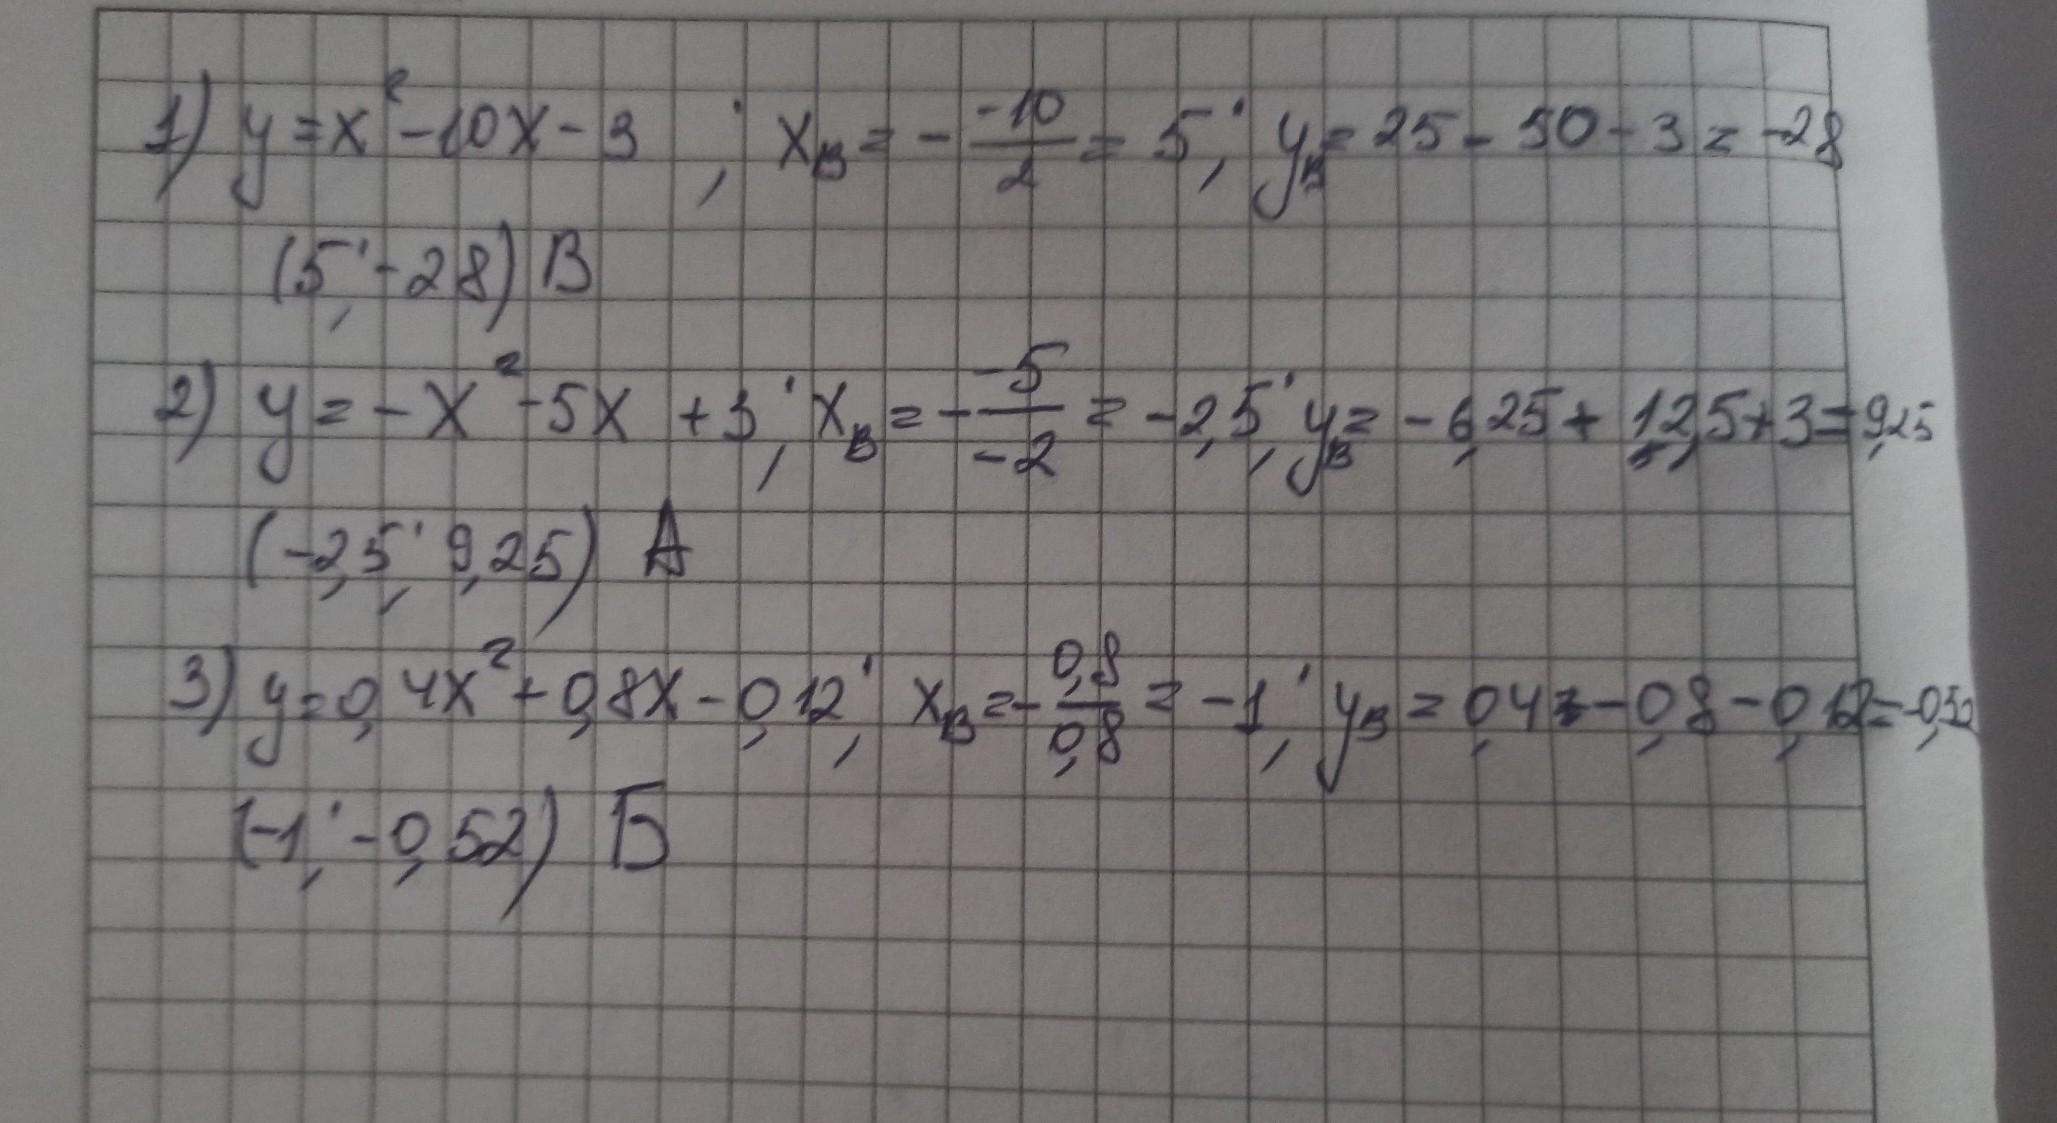 1) y = x² - 10x - 3 ; xв = - -10/2 = 5 ; yв = 25 - 50 - 3 = -28
(5 ; -28) В
2) y = -x² - 5x + 3 ; xв = - -5/-2 = -2,5 ; yв = -6,25 + 12,5 + 3 = 9,25
(-2,5 ; 9,25) А
3) y = 0,4x² + 0,8x - 0,12 ; xв = - 0,8/0,8 = -1 ; yв = 0,4 - 0,8 - 0,12 = -0,52
(-1 ; -0,52) Б